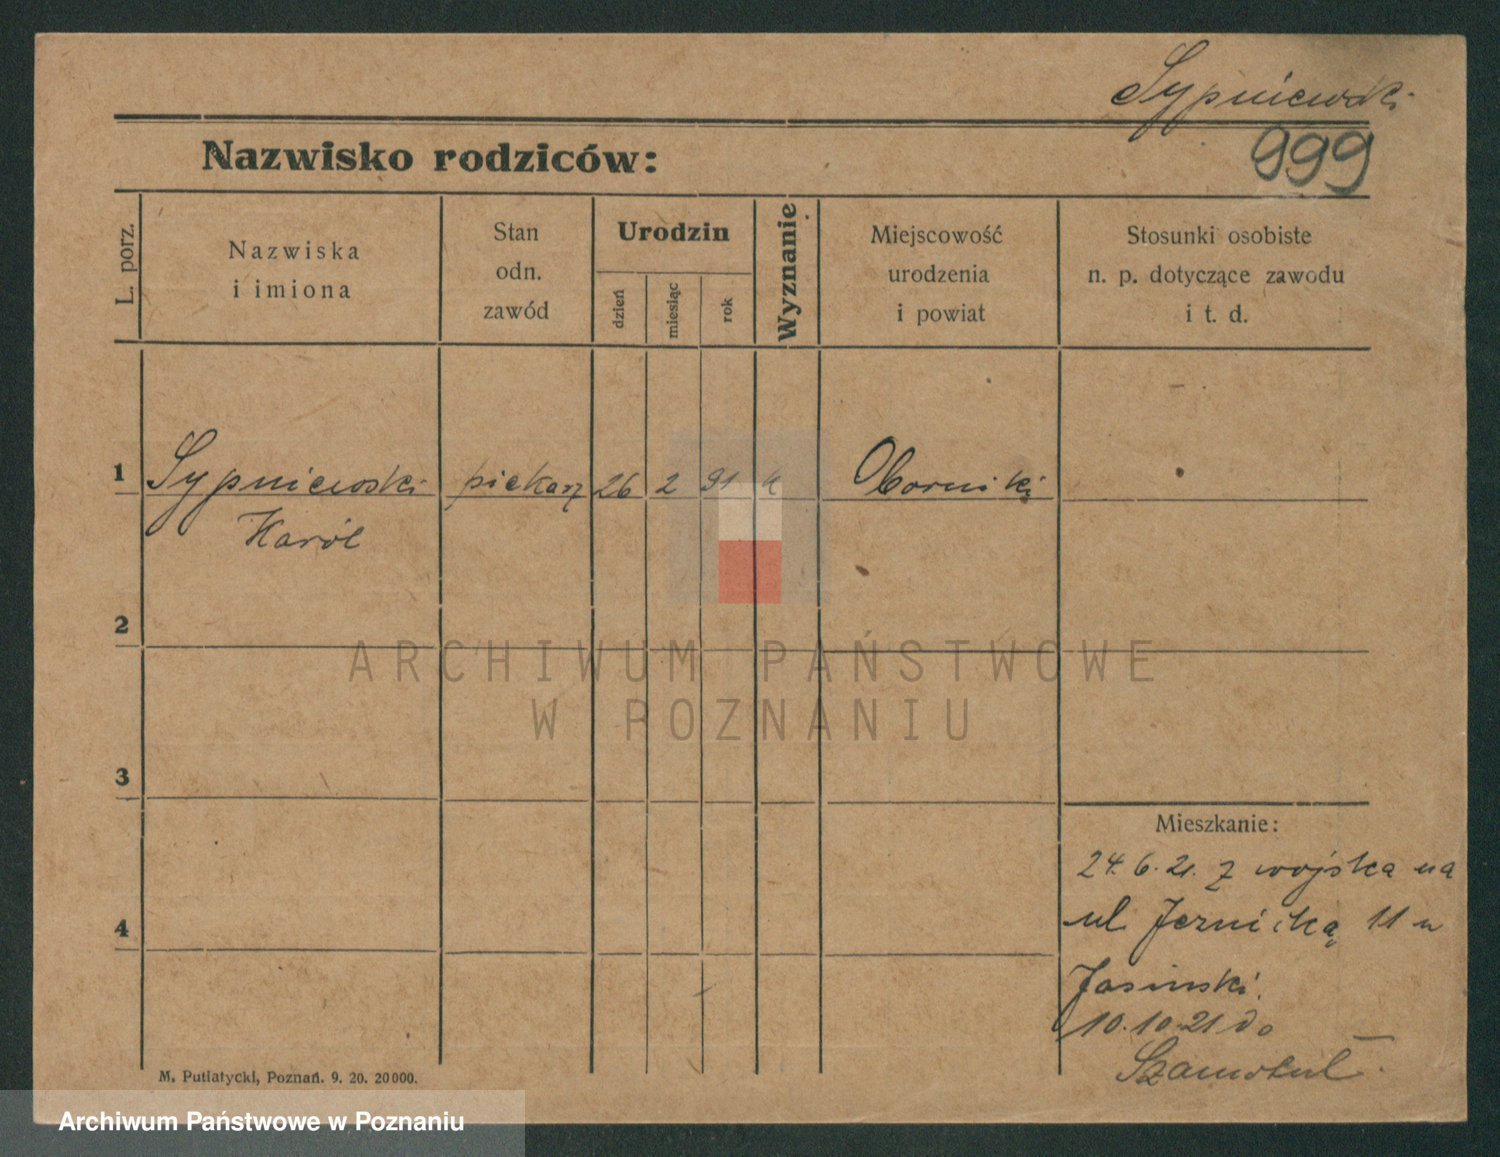 Sypniewski
999
Nazwisko rodziców:
L. porz.
Nazwiska
i imiona
Stan
odn.
zawód
Urodzin
dzień
miesiąc
rok
Wyznanie
Miejscowość
urodzenia
i powiat
Stosunki osobiste
n. p. dotyczące zawodu
i t. d.
1 Sypniewski piekarz 26 2 91 k Oborniki
Karól
2
ARCHIWUM PAŃSTWOWE
W POZNANIU
3
Mieszkanie:
24.6.21. z wojska na
ul. 11 u
4
Jasinski.
10.10.21 do
Szamotuł
M. Putiatycki, Poznań. 9. 20. 20000.
Archiwum Państwowe w Poznaniu